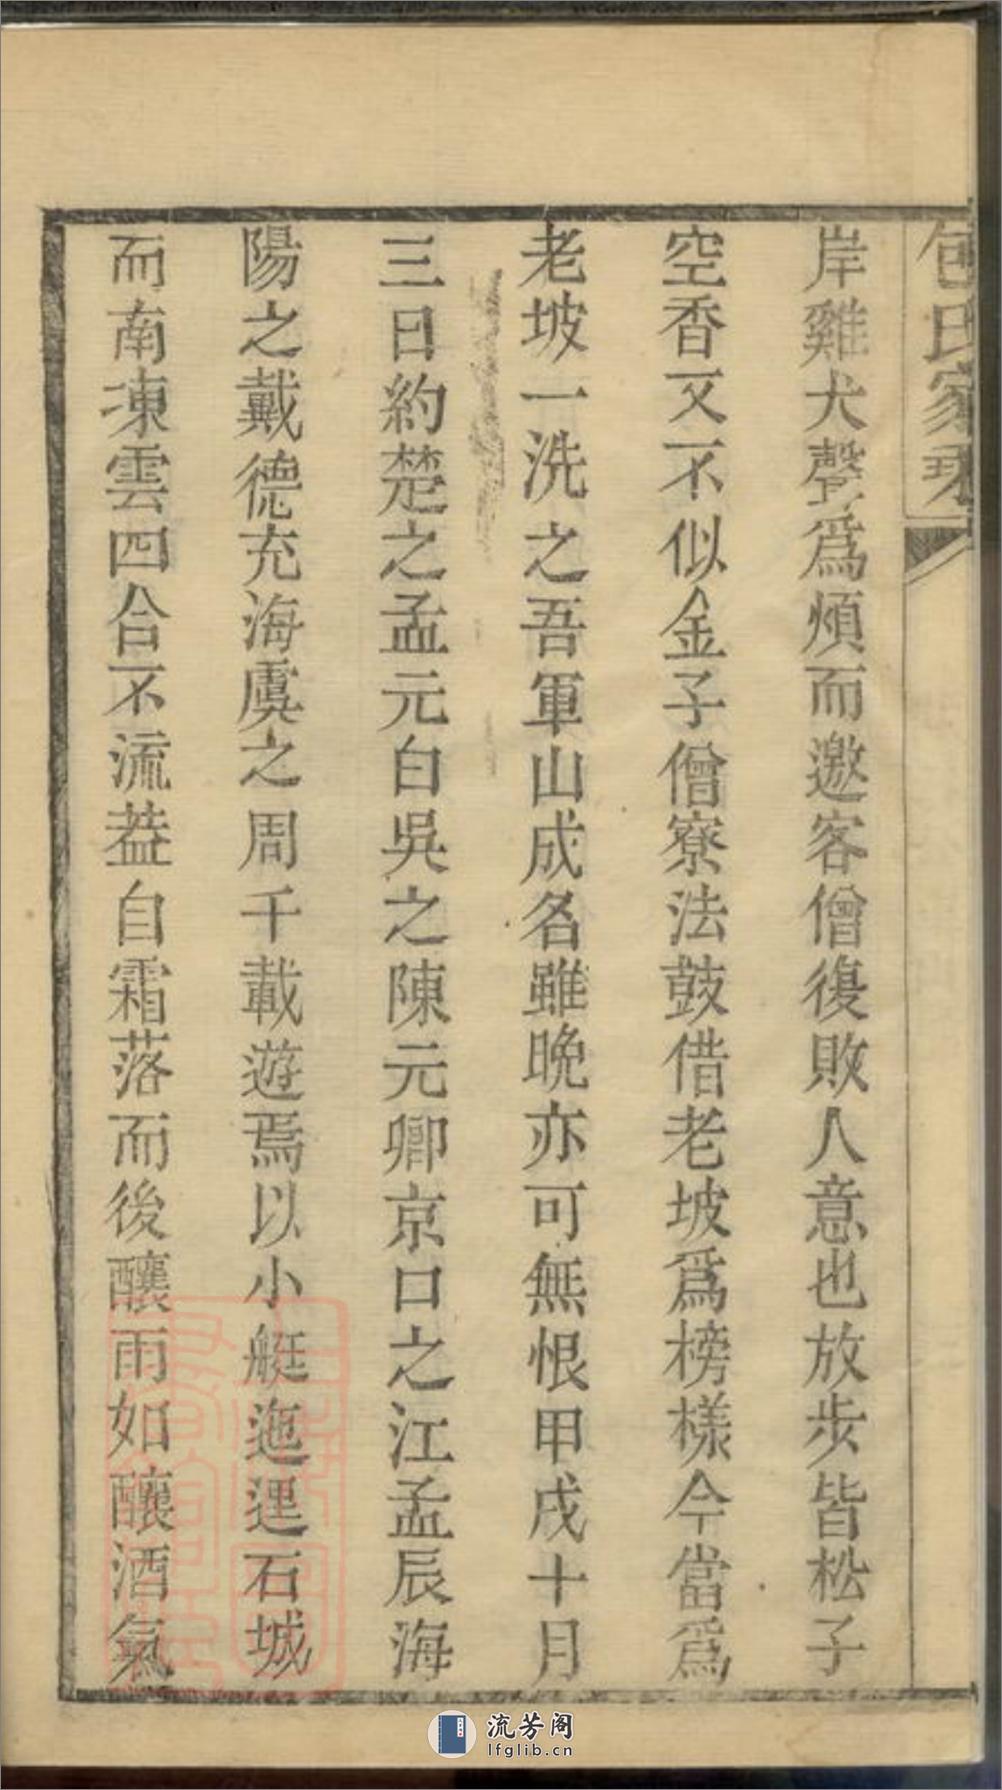 包氏家乘
岸雞犬聲爲煩而邀客僧復敗人意也放步皆松子
空香又不似金子僧寮法鼓借老坡爲榜樣今當爲
老坡一洗之吾軍山成名雖晚亦可無恨甲戌十月
三日約楚之孟元白吳之陳元卿京口之江孟辰海
陽之戴德充海虞之周千載遊焉以小艇迤逦石城
而南凍雲四合不流葢自霜落而後釀雨如釀酒氣
流芳阁
lfglib.cn